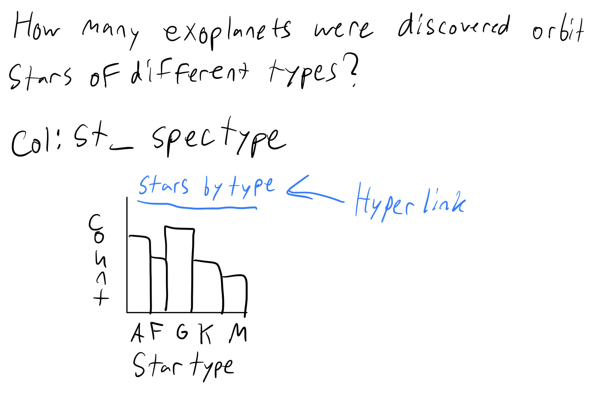 How many exoplanets were discovered orbit
Stars of different types?
Col: St_ spectype
Stars by type
Hyperlink
Count
A F G K M
Star type